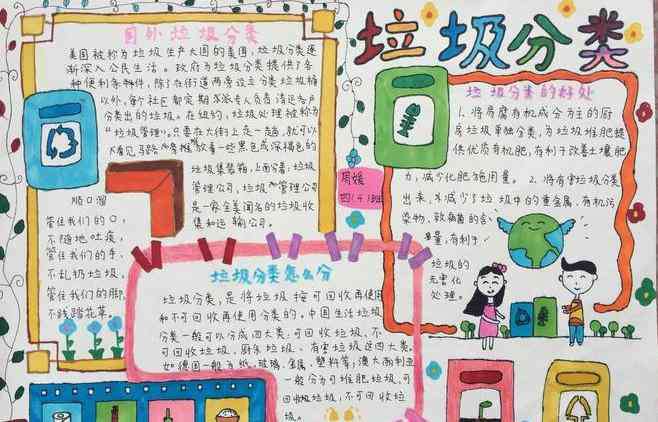 垃圾分类
国外垃圾分类
美国被称为垃圾生产大国的美国，垃圾分类逐
渐深入公民生活。政府为垃圾分类提供了各
种便利条件，除了在街道两旁设立分类垃圾桶
以外，每个社区都定期派专人负责清运各户
分类出的垃圾。在纽约，垃圾处理被称为
"垃圾管理"。只要在大街上走一趟，就可以
看见马路旁堆放着一些黑色或深褐色的
垃圾集装箱，上面分着：垃圾
管理公司，垃圾管理公司
是一家全美闻名的垃圾收
集和运输公司。
顺口溜
管住我们的口，
不随地吐痰，
管住我们的手，
不乱扔垃圾，
管住我们的脚，
不践踏花草。
周媛
四(4)班
垃圾分类的好处
1、将易腐有机成分为主的厨
房垃圾单独分类，为垃圾堆肥提
供优质有机肥，有利于改善土壤肥
力，减少化肥施用量。2、将有害垃圾分类
出来，减少了垃圾中的重金属，有机污
染物，致病菌的含
量，有利于
垃圾的
无害化
处理。
垃圾分类怎么分
垃圾分类，是将垃圾按可回收再使用
和不可回收再使用分类的。中国生活垃圾
分类一般可以分成四大类：可回收垃圾，不
可回收垃圾、厨余垃圾、有害垃圾这四大类。
如德国一般为纸，玻璃，金属，塑料等；澳大利亚
一般分为可堆肥垃圾，可
回收垃圾，不可回收垃
圾。